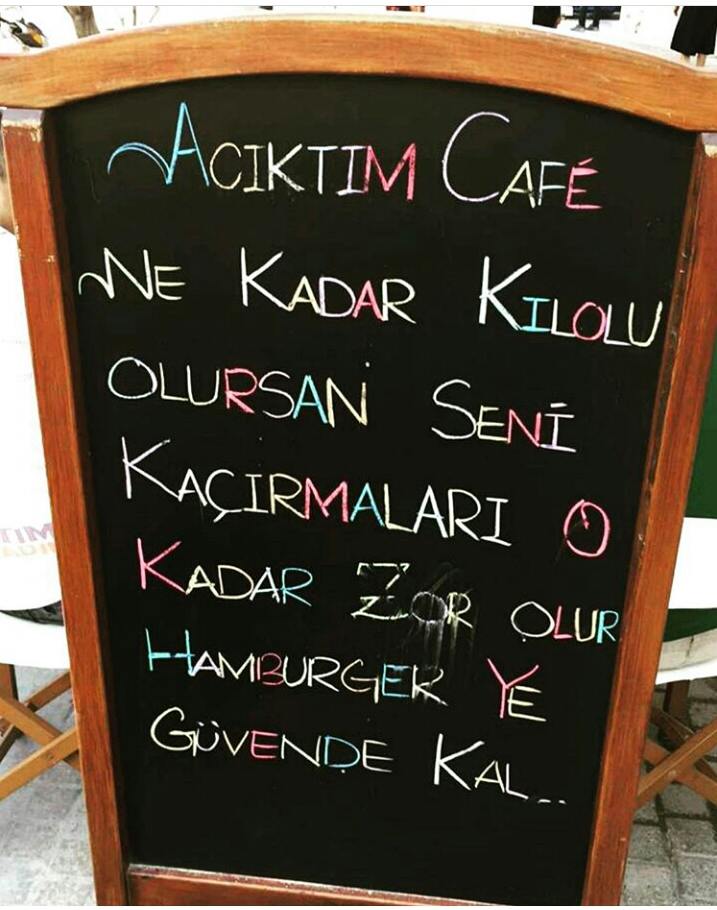 ACIKTIM CAFÉ
NE KADAR KILOLU
OLURSAN SENİ
KAÇIRMALARI O
KADAR ZOR OLUR
HAMBURGER YE
GÜVENDE KAL...